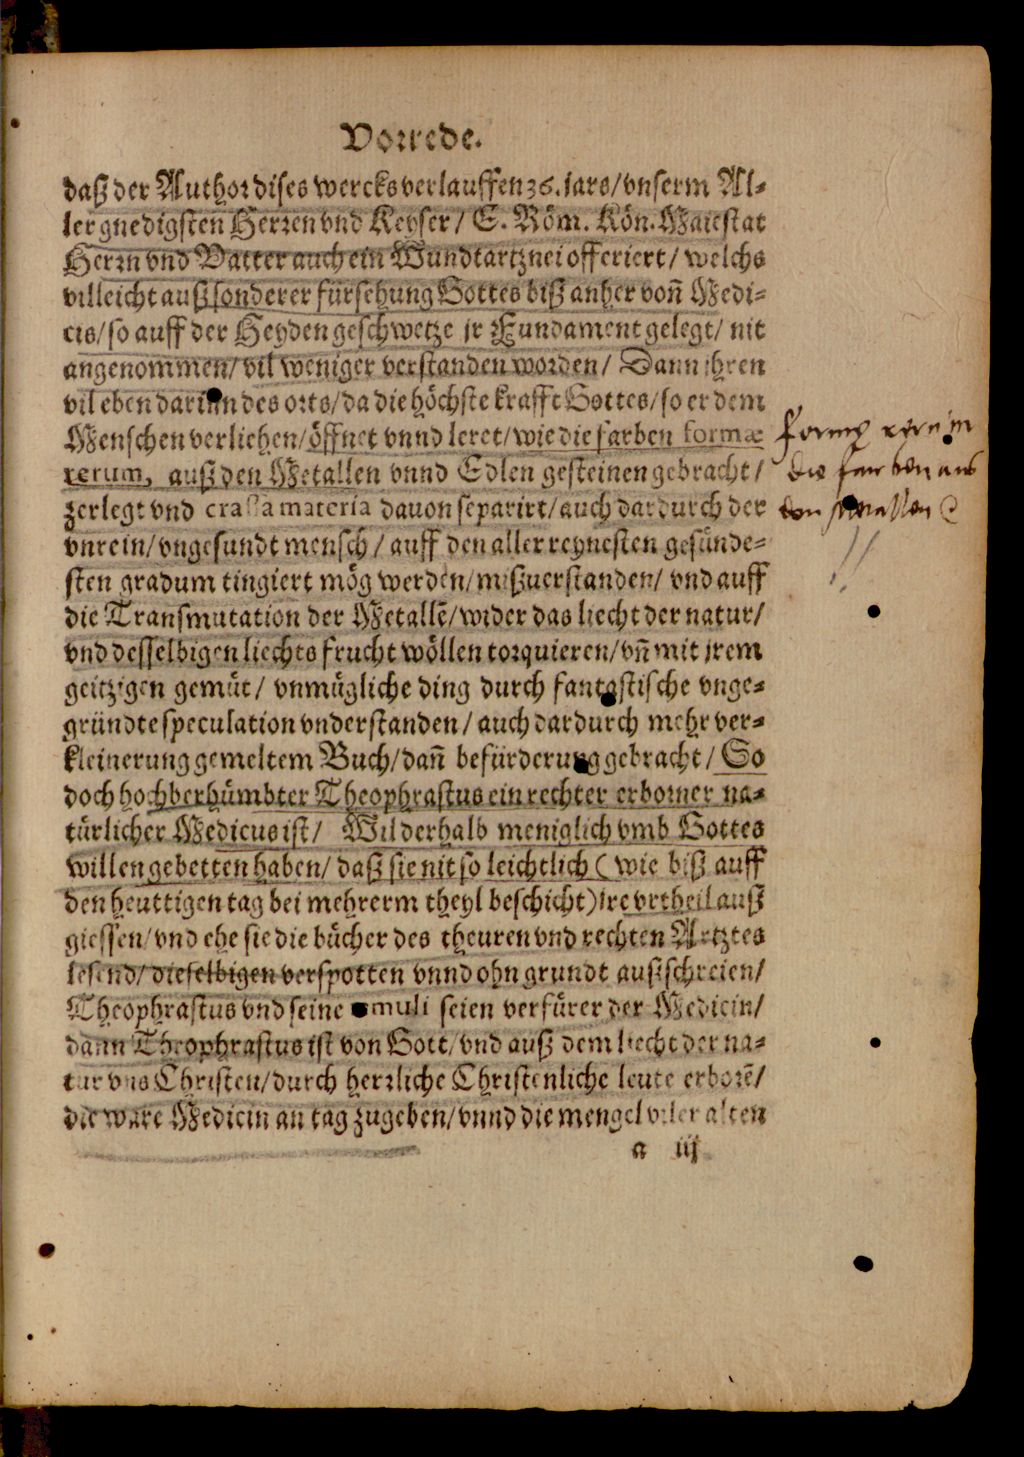 Vorrede.
daß der Author dises wercks verlauffen 36. jars/ vnserm Al-
lergnedigsten Herren vnd Keyser/ E. Röm. Kön. Maiestat
Herrn vnd Vatter auch ein Wundtartznei offeriert/ welchs
villeicht auß sonderer fürsehung Gottes biß anher von̄ Medi-
cis/ so auff der Heyden geschwetze jr Fundament gelegt/ nit
angenommen/ vil weniger verstanden worden/ Dann ihren
vil eben darinn des orts/ da die höchste krafft Gottes/ so er dem
Menschen verliehen/ öffnet vnnd leret/ wie die farben formæ
rerum, auß den Metallen vnnd Edlen gesteinen gebracht/
zerlegt vnd crassa materia dauon separirt/ auch dardurch der
vnrein/ vngesundt mensch/ auff den aller reynesten gesünde-
sten gradum tingiert mög werden/ mißuerstanden/ vnd auff
die Transmutation der Metallē/ wider das liecht der natur/
vnd desselbigen liechts frucht wöllen torquieren/ vn̄ mit jrem
geitzigen gemüt/ vnmügliche ding durch fantastische vnge-
gründte speculation vnderstanden/ auch dardurch mehr ver-
kleinerung gemeltem Buch/ dan̄ befürderung gebracht/ So
doch hochberhümbter Theophrastus ein rechter erborner na-
türlicher Medicus ist/ Wil derhalb meniglich vmb Gottes
willen gebetten haben/ daß sie nit so leichtlich (wie biß auff
den heuttigen tag bei mehrerm theyl beschicht) ire vrtheil auß
giessen/ vnd ehe sie die bücher des theuren vnd rechten Artztes
lesend/ dieselbigen verspotten vnnd ohn grundt außschreien/
Theophrastus vnd seine muli seien verfürer der Medicin/
dann Theophrastus ist von Gott/ vnd auß dem liecht der na-
tur vns Christen/ durch herrliche Christenliche leute erborē/
die ware Medicin an tag zugeben/ vnnd die mengel viler alten
a iij
formæ rerum
die farben aus
den metallen